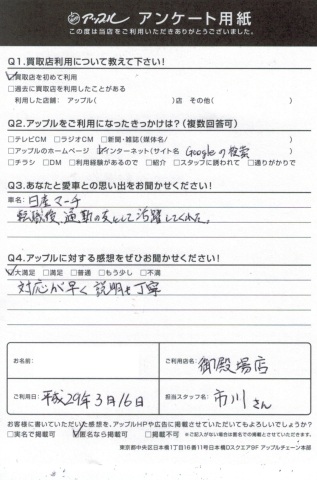 アップル アンケート用紙
この度は当店をご利用いただきありがとうございました。
Q1.買取店利用について教えて下さい!
☑買取店を初めて利用
□過去に買取店を利用したことがある
利用した店舗: アップル( )店 その他( )
Q2.アップルをご利用になったきっかけは?(複数回答可)
□テレビCM □ラジオCM □新聞・雑誌(媒体名/ )
□アップルのホームページ ☑インターネット(サイト名 Googleの検索 )
□チラシ □DM □利用経験があるので □紹介 □スタッフに誘われて □通りがかりで
Q3.あなたと愛車との思い出をお聞かせください!
車名: 日産マーチ
転職後、通勤の友として活躍してくれた。
Q4.アップルに対する感想をぜひお聞かせください!
☑大満足 □満足 □普通 □もう少し □不満
対応が早く説明も丁寧
お名前:
ご利用店名: 御殿場店
ご利用日: 平成29年3月16日
担当スタッフ名: 市川さん
お客様に書いていただいた感想を、アップルHPや広告に掲載させていただいてもよろしいでしょうか?
□実名で掲載可 ☑匿名なら掲載可 □掲載不可 ※ご記入がない場合は匿名での掲載とさせていただきます。
東京都中央区日本橋1丁目16番11号日本橋DスクエアBF アップルチェーン本部